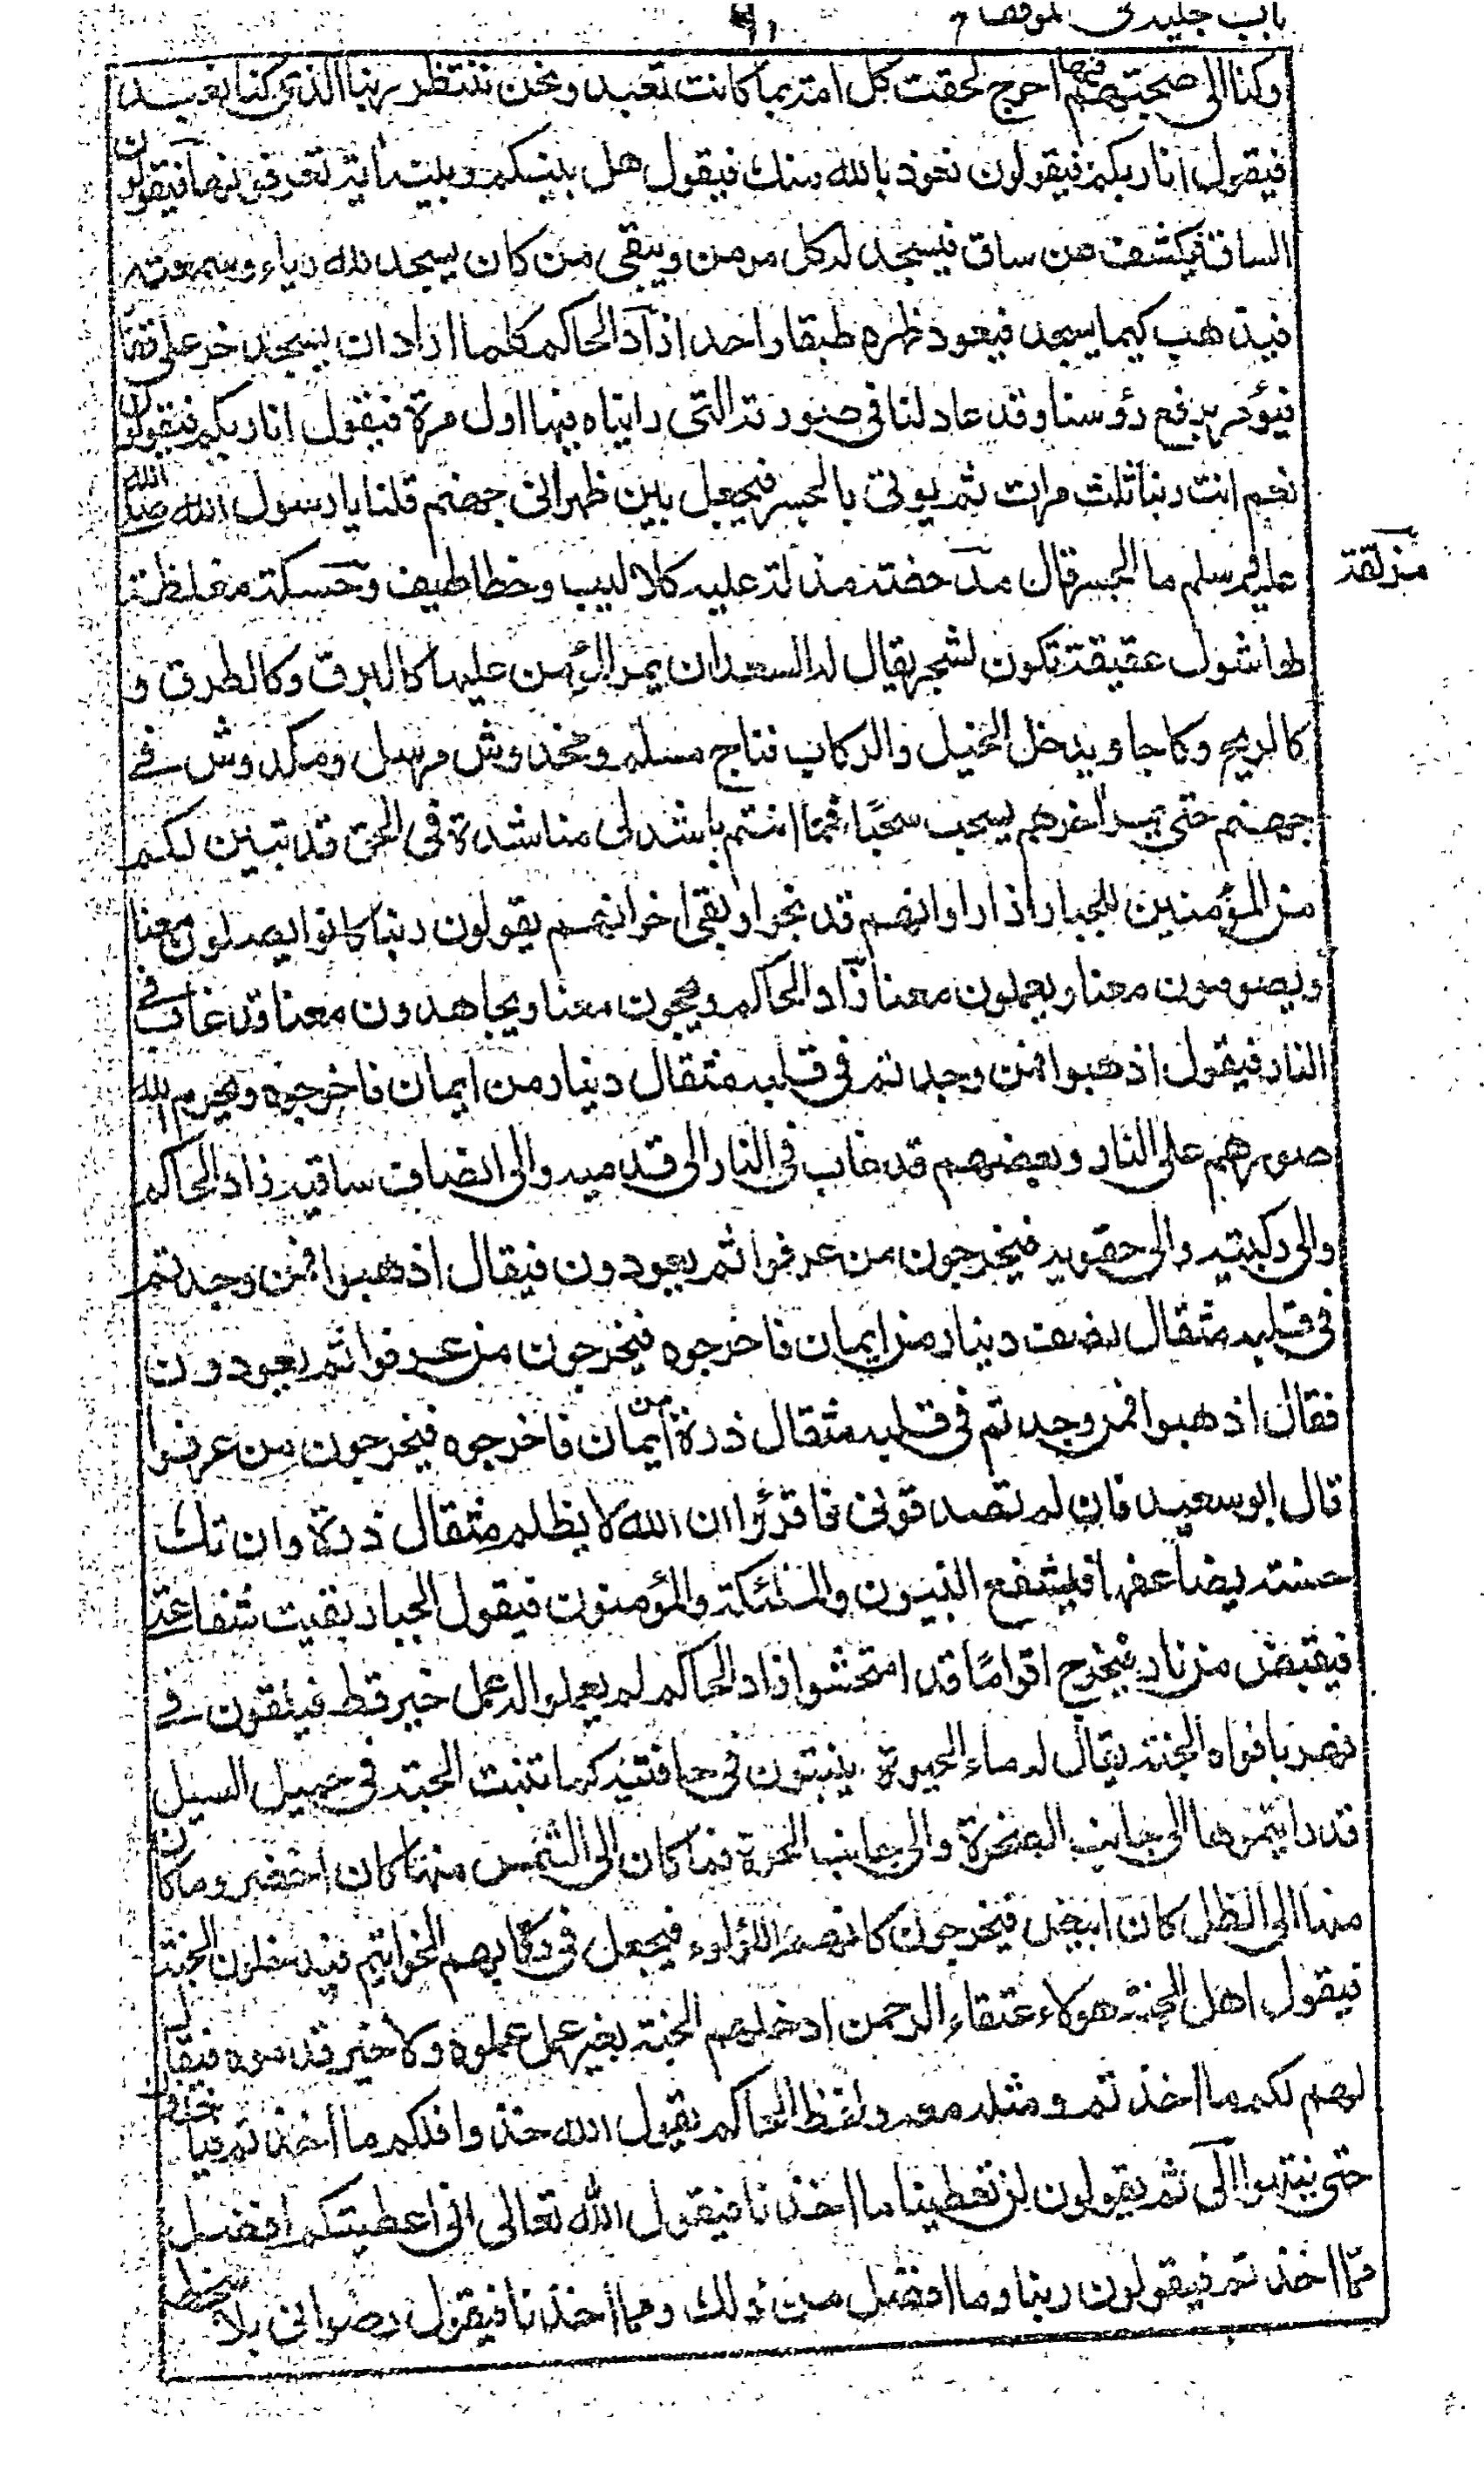 باب جليدى الموقف
٩١
وكنا الى صحبتهم فيها احرج لحقت كل امة بما كانت تعبد ونحن ننتظر ربنا الذى كنا نعبد
فيقول انا ربكم فيقولون نعوذ بالله منك فيقول هل بينكم وبينه اية تعرفونها فيقولون
الساق فيكشف عن ساق فيسجد له كل مومن ويبقى من كان يسجد لله رياء وسمعة
فيذهب كيما يسجد فيعود ظهره طبقا واحدا زاد الحاكم كلما اراد ان يسجد خر على قفا
فيؤمر برفع رؤوسنا وقد عاد لنا فى صورته التى رايناه فيها اول مرة فيقول انا ربكم فيقولون
نعم انت ربنا ثلث مرات ثم يوتى بالجسر فيجعل بين ظهرانى جهنم قلنا يا رسول الله صلى الله
عليه وسلم ما الجسر قال مدحضة مذلة عليه كلاليب وخطاطيف وحسكة مغلظة
مزلقة
لها شوك عقيقة تكون لشجر يقال له السعدان يمر المؤمن عليها كالبرق وكالطرف و
كالريح وكاجاويد خل الخيل والركاب فناج مسلم ومخدوش مرسل ومكدوش فى
جهنم حتى يمر اخرهم يسحب سحبًا فما انتم باشد لى مناشدة فى الحق قد تبين لكم
من المؤمنين للجبار اذا راوا انهم قد نجوا وبقى اخوانهم يقولون ربنا كانوا يصلون معنا
ويصومون معنا ويعملون معنا زاد الحاكم ويحجون معنا ويجاهدون معنا وقد غاب فى
النار فيقول اذهبوا فمن وجدتم فى قلبه مثقال دينار من ايمان فاخرجوه ويحرم الله
صورهم على النار وبعضهم قد غاب فى النار الى قدميه والى انصاف ساقيه زاد الحاكم
والى ركبتيه والى حقويه فيخرجون من عرفوا ثم يعودون فيقال اذهبوا فمن وجدتم
فى قلبه مثقال نصف دينار من ايمان فاخرجوه فيخرجون من عرفوا ثم يعودون
فقال اذهبوا فمن وجدتم فى قلبه مثقال ذرة من ايمان فاخرجوه فيخرجون من عرفوا
قال ابو سعيد فان لم تصدقونى فاقرؤا ان الله لا يظلم مثقال ذرة وان تك
حسنة يضاعفها فيشفع النبيون والملئكة والمؤمنون فيقول الجبار بقيت شفاعة
فيقبض من نار فيخرج اقوامًا قد امتحشوا زاد الحاكم لم يعملوا له عمل خير قط فيلقون فى
نهر بافواه الجنة يقال له ماء الحيوة ينبتون فى حافتيه كما تنبت الحبة فى حميل السيل
قد رايتموها الى جانب الصخرة والى جانب الشجرة فما كان الى الشمس منها كان اخضر وما كان
منها الى الظل كان ابيض فيخرجون كانهم اللؤلوء فيجعل فى رقابهم الخواتيم فيدخلون الجنة
فيقول اهل الجنة هولاء عتقاء الرحمن ادخلهم الجنة بغير عمل عملوه ولا خير قدموه فيقال
لهم لكم ما اخذتم ومثله معه ولفظ الحاكم يقول الله خذوا فلكم ما اخذتم فياخذون
حتى ينتهوا الى ثم يقولون لن تعطينا ما اخذنا فيقول الله تعالى انى اعطيتكم افضل
مما اخذتم فيقولون ربنا وما افضل من ذلك ومما اخذنا فيقول رضوانى بلا سخط